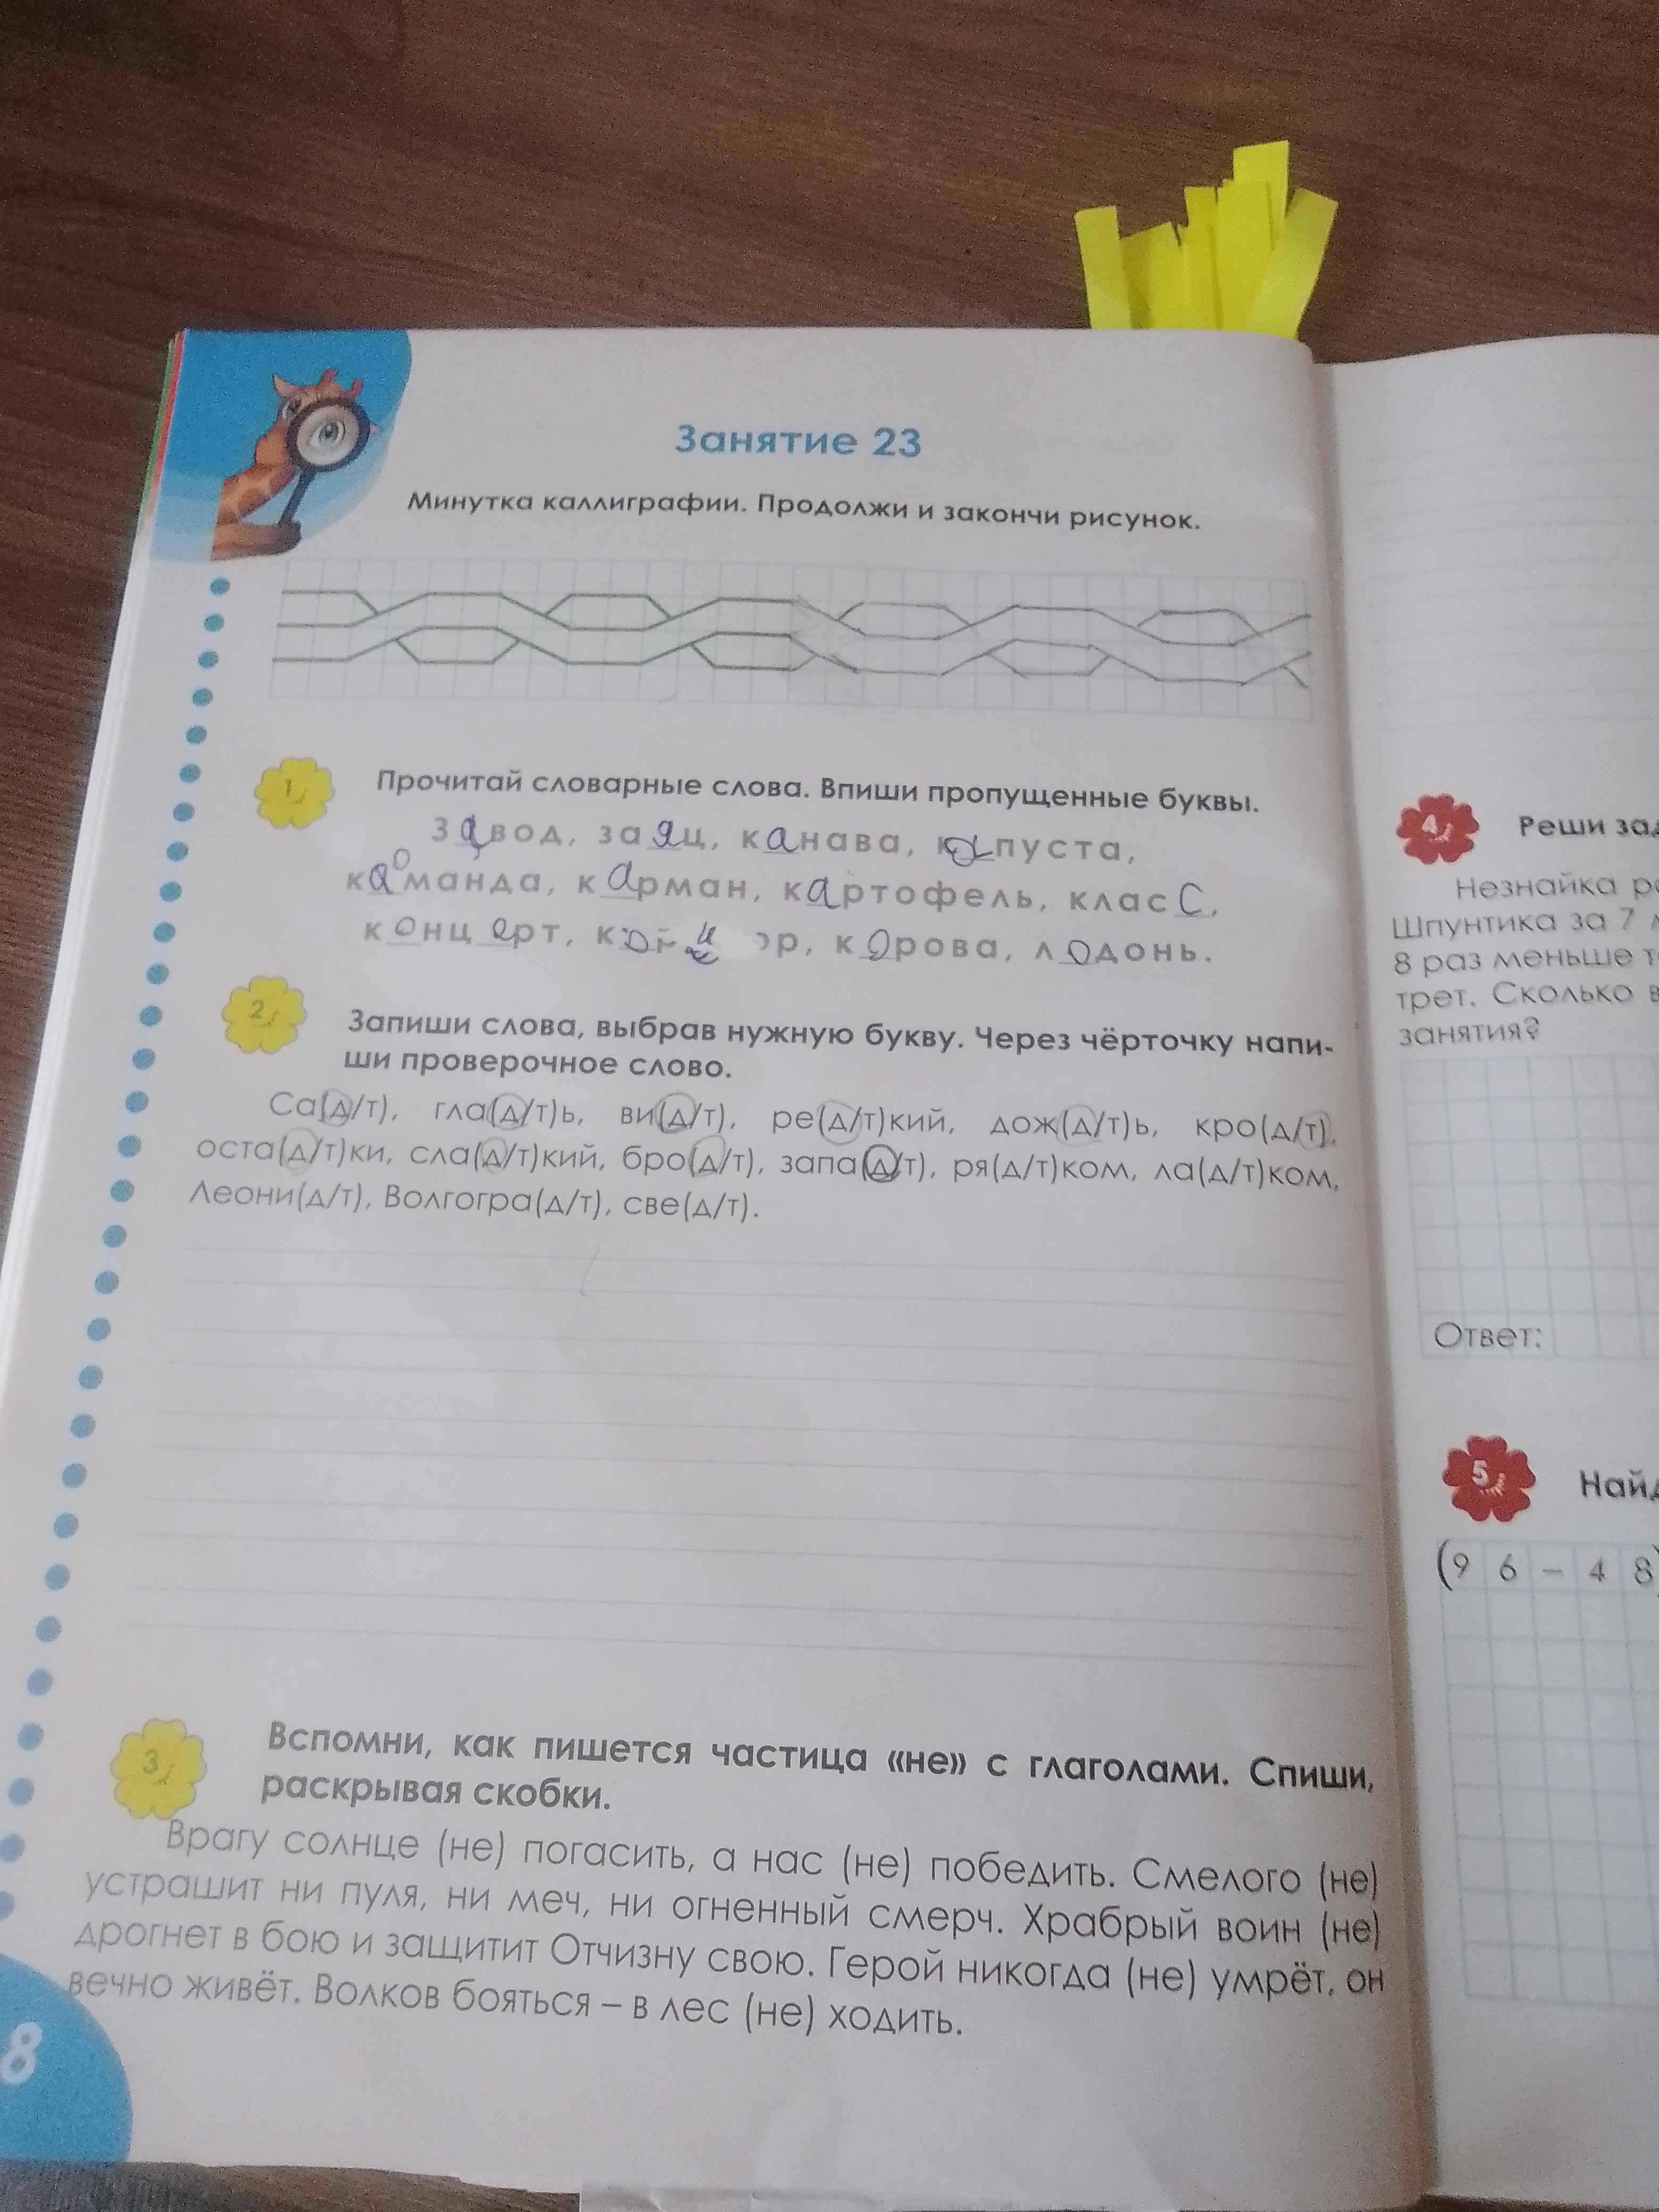 Занятие 23
Минутка каллиграфии. Продолжи и закончи рисунок.
1
Прочитай словарные слова. Впиши пропущенные буквы.
Завод, заяц, канава, капуста,
команда, карман, картофель, класс,
концерт, ор, корова, лодонь.
2
Запиши слова, выбрав нужную букву. Через чёрточку напи-
ши проверочное слово.
Са(д/т), гла(д/т)ь, ви(д/т), ре(д/т)кий, дож(д/т)ь, кро(д/т),
оста(д/т)ки, сла(д/т)кий, бро(д/т), запа(д/т), ря(д/т)ком, ла(д/т)ком,
Леони(д/т), Волгогра(д/т), све(д/т).
3
Вспомни, как пишется частица «не» с глаголами. Спиши,
раскрывая скобки.
Врагу солнце (не) погасить, а нас (не) победить. Смелого (не)
устрашит ни пуля, ни меч, ни огненный смерч. Храбрый воин (не)
дрогнет в бою и защитит Отчизну свою. Герой никогда (не) умрёт, он
вечно живёт. Волков бояться – в лес (не) ходить.
8
4
Реши
Незнайка
Шпунтика за 7
8 раз меньше
трет. Сколько
занятия?
Ответ:
5
(96 – 48)